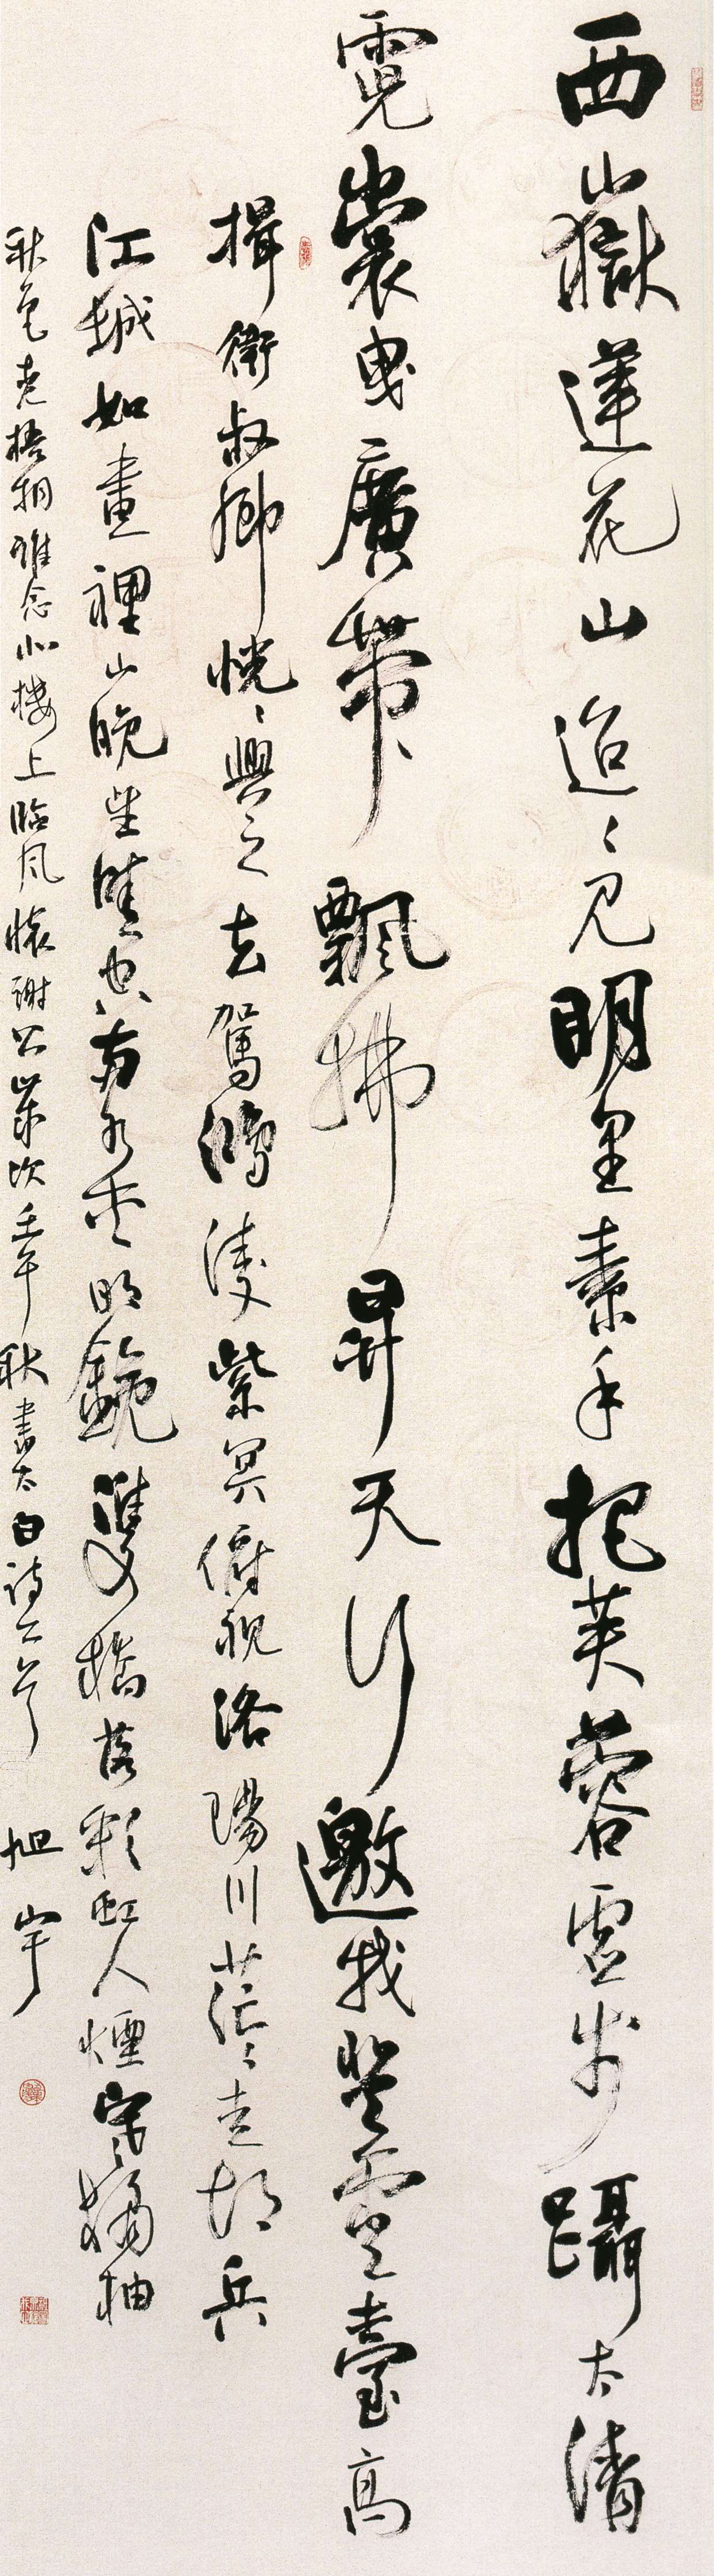 西嶽蓮花山迢々見明星素手把芙蓉虛步躡太清
霓裳曳廣帶飄拂昇天行邀我登雲臺高
揖衛叔卿恍々與之去駕鴻淩紫冥俯視洛陽川茫々走胡兵
江城如畫裡山晚望晴空兩水夾明鏡雙橋落彩虹人煙寒橘柚
秋色老梧桐誰念北樓上臨風懷謝公歲次壬午秋書太白詩二首 旭宇